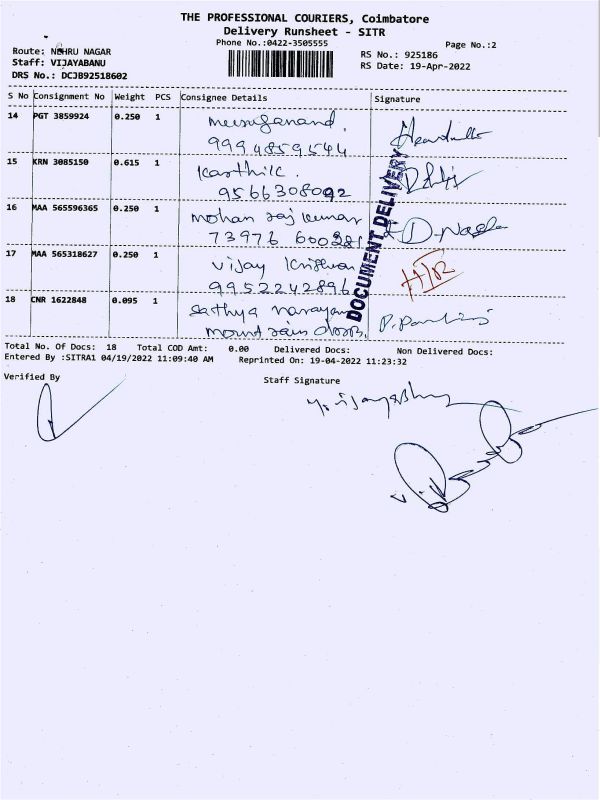 THE PROFESSIONAL COURIERS, Coimbatore
Delivery Runsheet - SITR
Phone No.:0422-3505555
Page No.:2
Route: NEHRU NAGAR
RS No.: 925186
Staff: VIJAYABANU
RS Date: 19-Apr-2022
DRS No.: DCJB92518602
S No Consignment No Weight PCS Consignee Details Signature
14 PGT 3859924 0.250 1
9994859544
15 KRN 3085150 0.615 1 Karthik.
9566308092
16 MAA 565596365 0.250 1 mohan raj kumar
73976 600281 D-Nagla
17 MAA 565318627 0.250 1 vijay Krishnan
9952242896
18 CNR 1622848 0.095 1 Sathya narayana
DOCUMENT DELIVERY
Total No. Of Docs: 18 Total COD Amt: 0.00 Delivered Docs: Non Delivered Docs:
Entered By :SITRA1 04/19/2022 11:09:40 AM Reprinted On: 19-04-2022 11:23:32
Verified By
Staff Signature